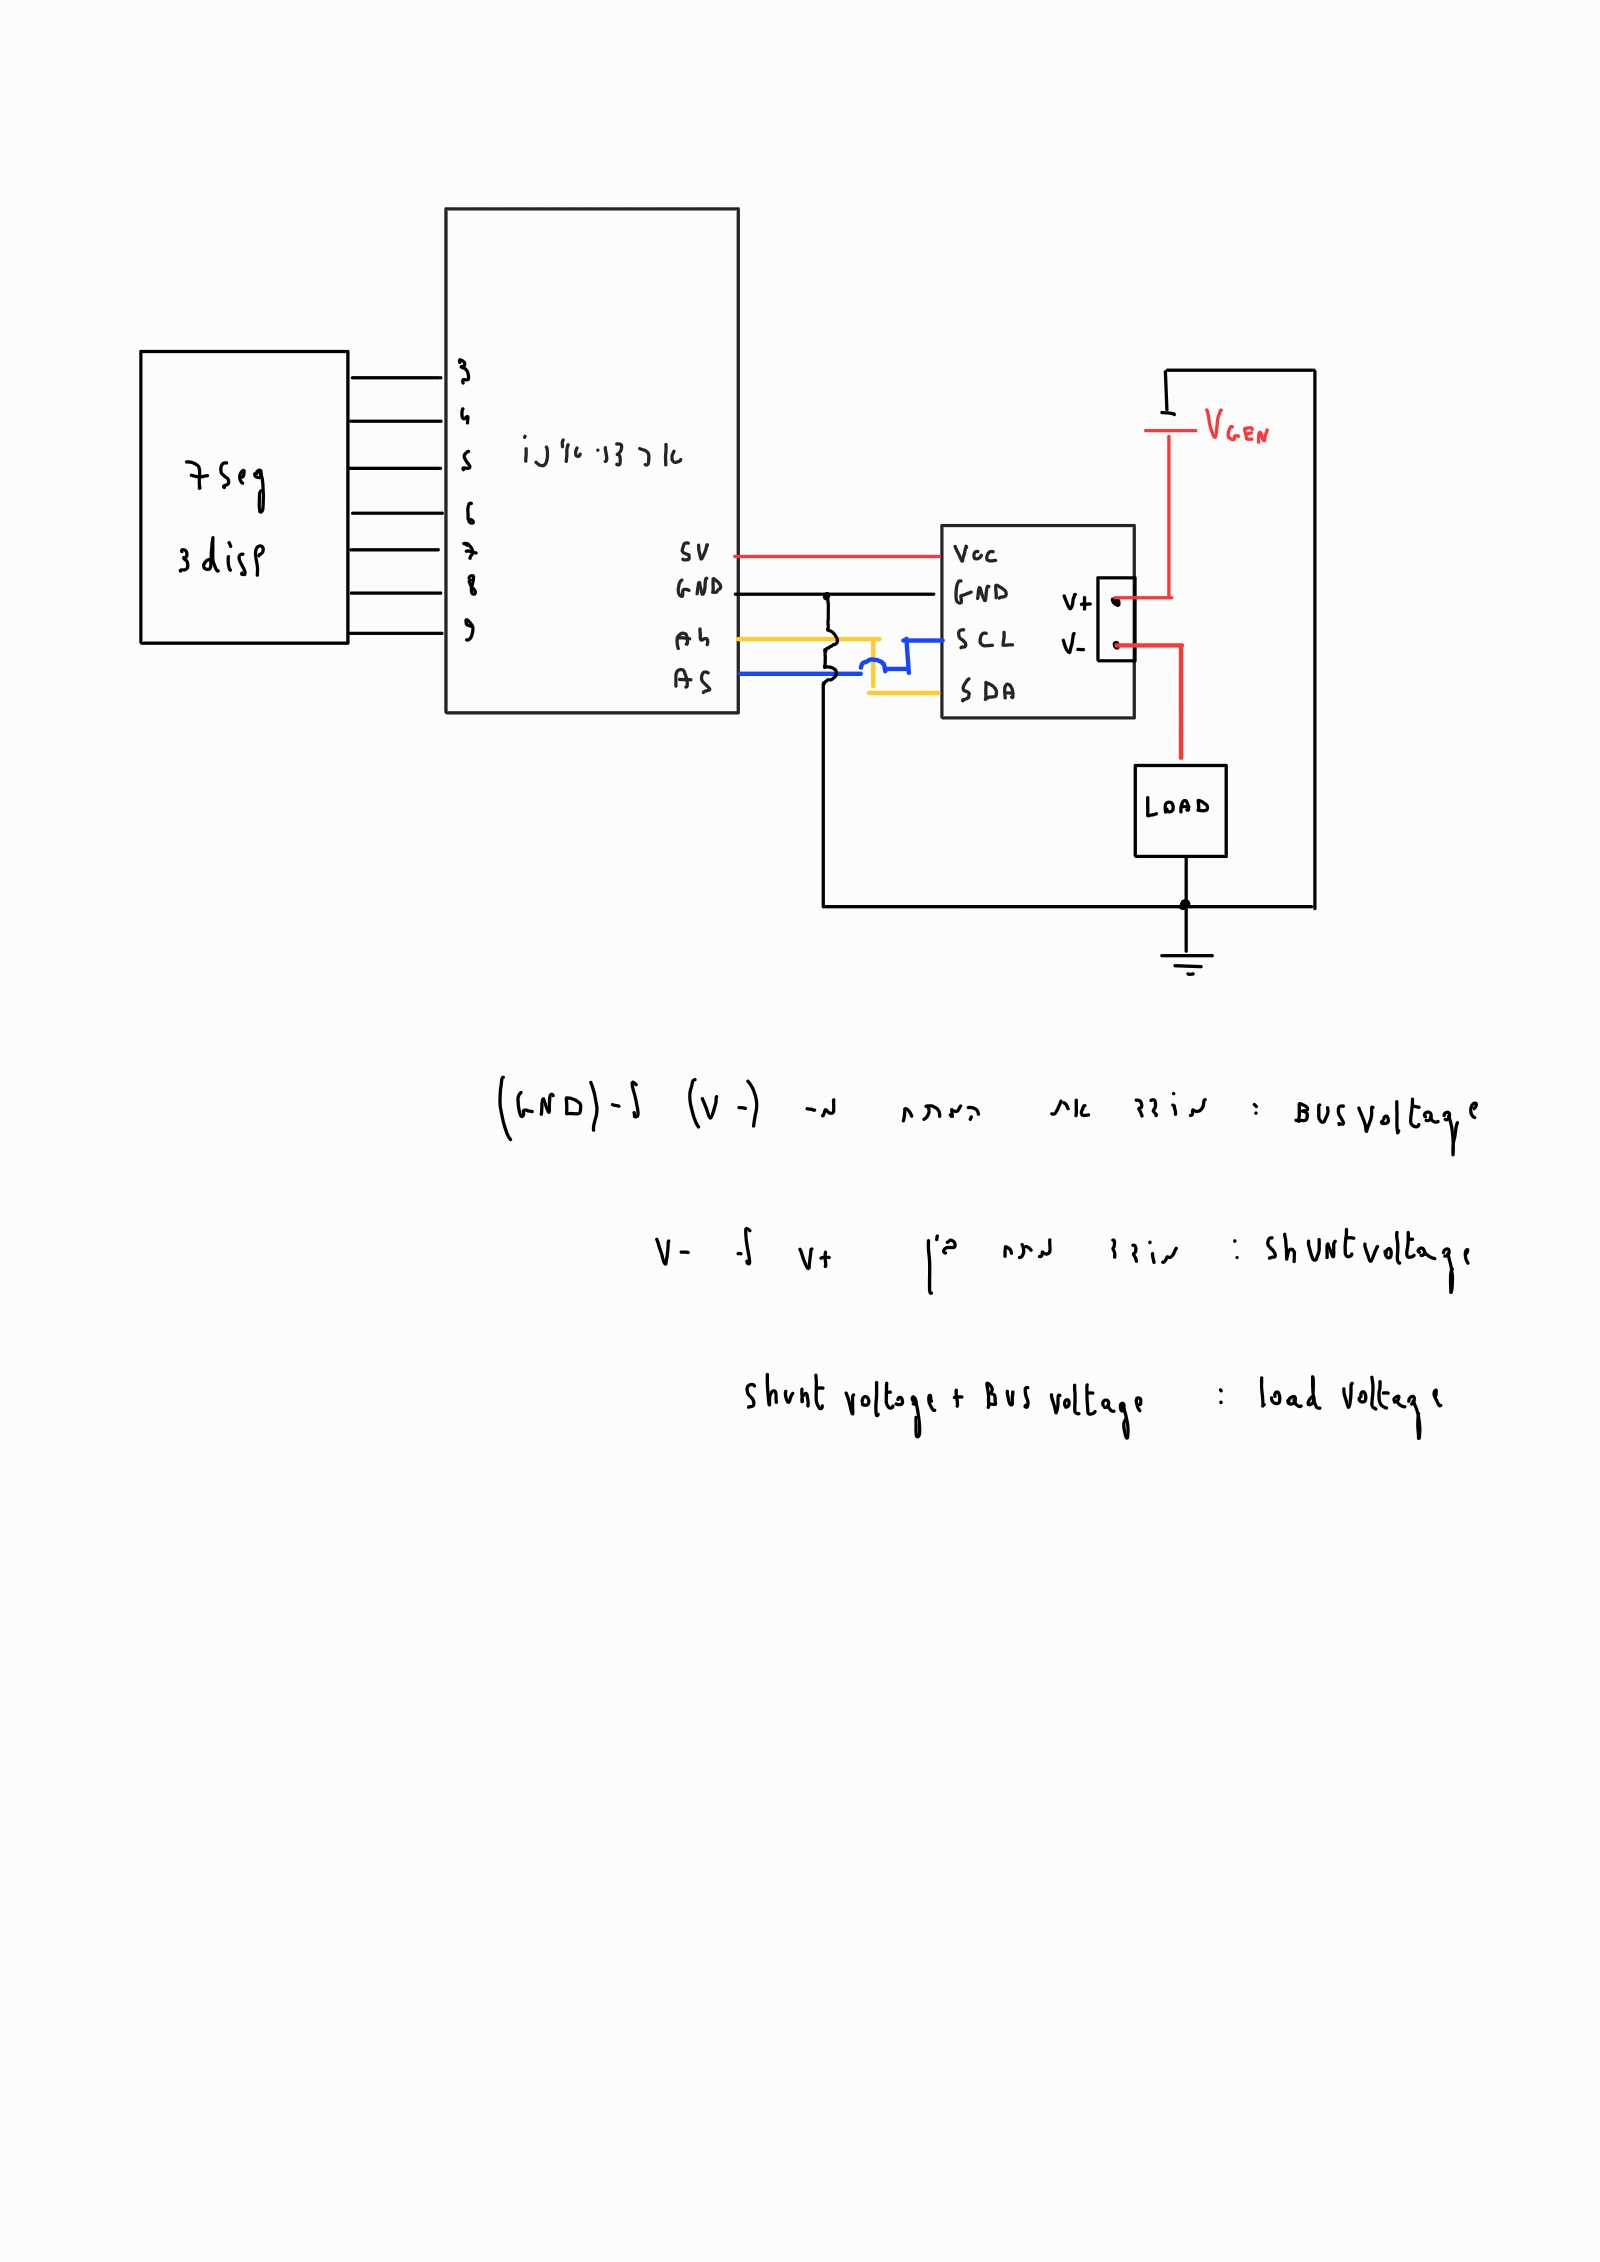 7 Seg
3 disp
3
4
5
6
7
8
9
ארדואינו
5V
GND
A4
A5
Vcc
GND
SCL
SDA
V+
V-
VGEN
LOAD
Bus Voltage : מודד את המתח מ- (V-) ל- (GND)
Shunt voltage : מודד מתח בין V+ ל- V-
load voltage : Shunt voltage + Bus voltage